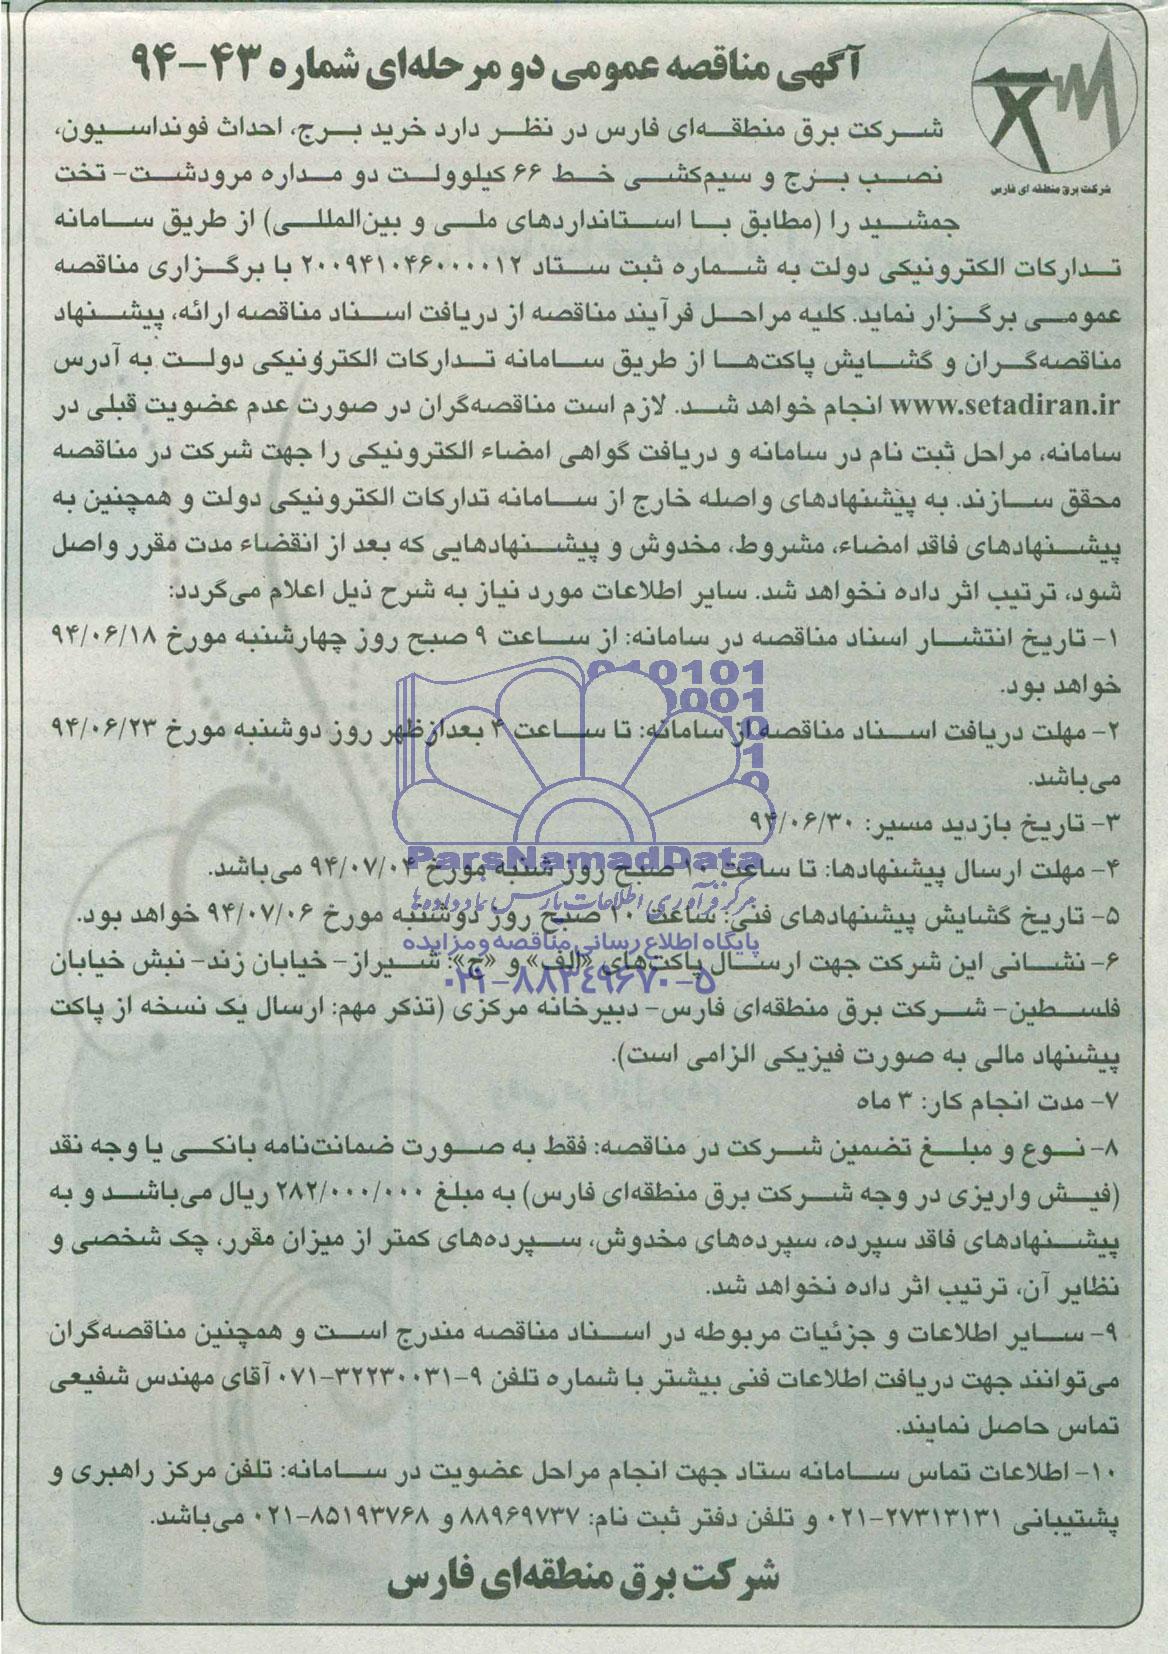 آگهی مناقصه عمومی دو مرحله‌ای شماره ۴۳-۹۴
شرکت برق منطقه ای فارس
شرکت برق منطقه‌ای فارس در نظر دارد خرید برج، احداث فونداسیون،
نصب برج و سیم‌کشی خط ۶۶ کیلوولت دو مداره مرودشت- تخت
جمشید را (مطابق با استانداردهای ملی و بین‌المللی) از طریق سامانه
تدارکات الکترونیکی دولت به شماره ثبت ستاد ۲۰۰۹۴۱۰۴۶۰۰۰۰۱۲ با برگزاری مناقصه
عمومی برگزار نماید. کلیه مراحل فرآیند مناقصه از دریافت اسناد مناقصه ارائه، پیشنهاد
مناقصه‌گران و گشایش پاکت‌ها از طریق سامانه تدارکات الکترونیکی دولت به آدرس
www.setadiran.ir انجام خواهد شد. لازم است مناقصه‌گران در صورت عدم عضویت قبلی در
سامانه، مراحل ثبت نام در سامانه و دریافت گواهی امضاء الکترونیکی را جهت شرکت در مناقصه
محقق سازند. به پیشنهادهای واصله خارج از سامانه تدارکات الکترونیکی دولت و همچنین به
پیشنهادهای فاقد امضاء، مشروط، مخدوش و پیشنهادهایی که بعد از انقضاء مدت مقرر واصل
شود، ترتیب اثر داده نخواهد شد. سایر اطلاعات مورد نیاز به شرح ذیل اعلام می‌گردد:
۱- تاریخ انتشار اسناد مناقصه در سامانه: از ساعت ۹ صبح روز چهارشنبه مورخ ۹۴/۰۶/۱۸
خواهد بود.
۲- مهلت دریافت اسناد مناقصه از سامانه: تا ساعت ۴ بعدازظهر روز دوشنبه مورخ ۹۴/۰۶/۲۳
می‌باشد.
۳- تاریخ بازدید مسیر: ۹۴/۰۶/۳۰
ParsNamadData
۴- مهلت ارسال پیشنهادها: تا ساعت ۱۰ صبح روز شنبه مورخ ۹۴/۰۷/۰۴ می‌باشد.
مرکز فرآوری اطلاعات پارس نماد داده‌ها
۵- تاریخ گشایش پیشنهادهای فنی: ساعت ۱۰ صبح روز دوشنبه مورخ ۹۴/۰۷/۰۶ خواهد بود.
پایگاه اطلاع رسانی مناقصه و مزایده
۶- نشانی این شرکت جهت ارسال پاکت‌های «الف» و «ج»: شیراز- خیابان زند- نبش خیابان
۰۲۱-۸۸۳۴۹۶۷۰-۵
فلسطین- شرکت برق منطقه‌ای فارس- دبیرخانه مرکزی (تذکر مهم: ارسال یک نسخه از پاکت
پیشنهاد مالی به صورت فیزیکی الزامی است).
۷- مدت انجام کار: ۳ ماه
۸- نوع و مبلغ تضمین شرکت در مناقصه: فقط به صورت ضمانت‌نامه بانکی یا وجه نقد
(فیش واریزی در وجه شرکت برق منطقه‌ای فارس) به مبلغ ۲۸۲/۰۰۰/۰۰۰ ریال می‌باشد و به
پیشنهادهای فاقد سپرده، سپرده‌های مخدوش، سپرده‌های کمتر از میزان مقرر، چک شخصی و
نظایر آن، ترتیب اثر داده نخواهد شد.
۹- سایر اطلاعات و جزئیات مربوطه در اسناد مناقصه مندرج است و همچنین مناقصه‌گران
می‌توانند جهت دریافت اطلاعات فنی بیشتر با شماره تلفن ۹-۳۲۲۳۰۰۳۱-۰۷۱ آقای مهندس شفیعی
تماس حاصل نمایند.
۱۰- اطلاعات تماس سامانه ستاد جهت انجام مراحل عضویت در سامانه: تلفن مرکز راهبری و
پشتیبانی ۲۷۳۱۳۱۳۱-۰۲۱ و تلفن دفتر ثبت نام: ۸۸۹۶۹۷۳۷ و ۸۵۱۹۳۷۶۸-۰۲۱ می‌باشد.
شرکت برق منطقه‌ای فارس